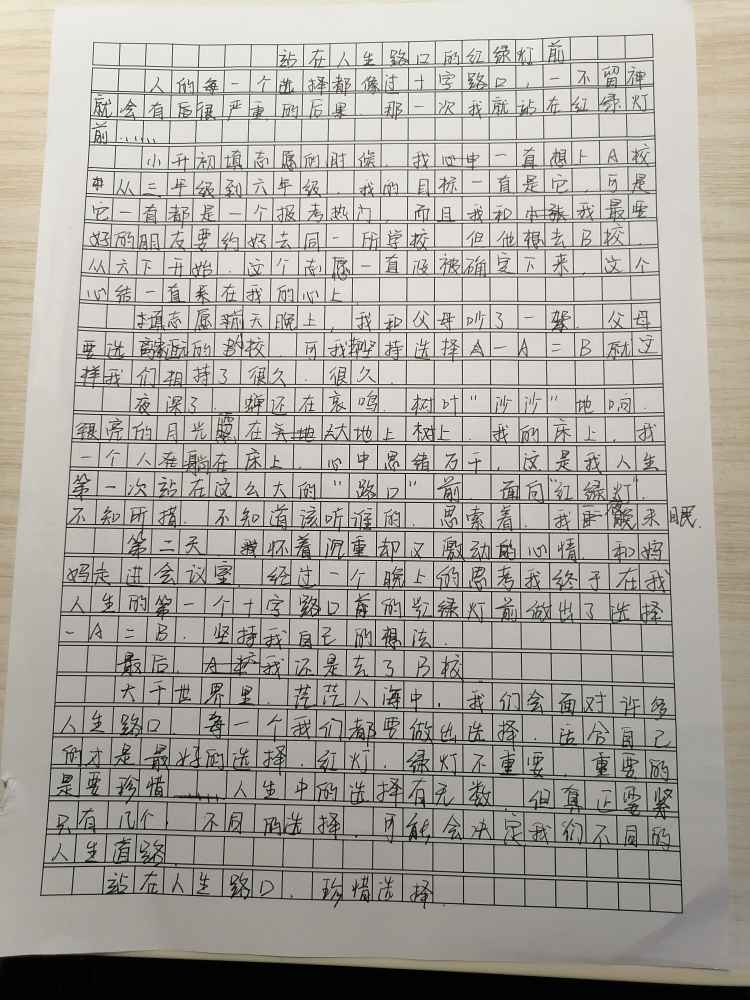 站在人生路口的红绿灯前
人的每一个选择都像过十字路口，一不留神
就会有后很严重的后果．那一次我就站在红绿灯
前……
小升初填志愿的时候．我心中一直想上A校
从三年级到六年级．我的目标一直是它．可是
它一直都是一个报考热门．而且我和我最要
好的朋友要约好去同一所学校．但他想去B校．
从六下开始．这个志愿一直没被确定下来．这个
心结一直系在我的心上．
填志愿前天晚上，我和父母吵了一架．父母
要选离家近的B校．可我坚持选择A一A二B就这
样我们相持了很久．很久．
夜深了．蝉还在哀鸣．树叶"沙沙"地响．
银亮的月光照在大地上树上．我的床上．我
一个人躺在床上．心中思绪万千．这是我人生
第一次站在这么大的"路口"前．面向"红绿灯"．
不知所措．不知道该听谁的．思索着．我彻夜未眠．
第二天 我怀着沉重却又激动的心情．和妈
妈走进会议室．经过一个晚上的思考我终于在我
人生的第一个十字路口前的红绿灯前做出了选择
一A二B．坚持我自己的想法．
最后．我还是去了B校．
大千世界里．茫茫人海中．我们会面对许多
人生路口．每一个我们都要做出选择．适合自己
的才是最好的选择．红灯．绿灯不重要．重要的
是要珍惜……人生中的选择有无数．但真正要紧
只有几个，不同的选择．可能会决定我们不同的
人生道路．
站在人生路口．珍惜选择．